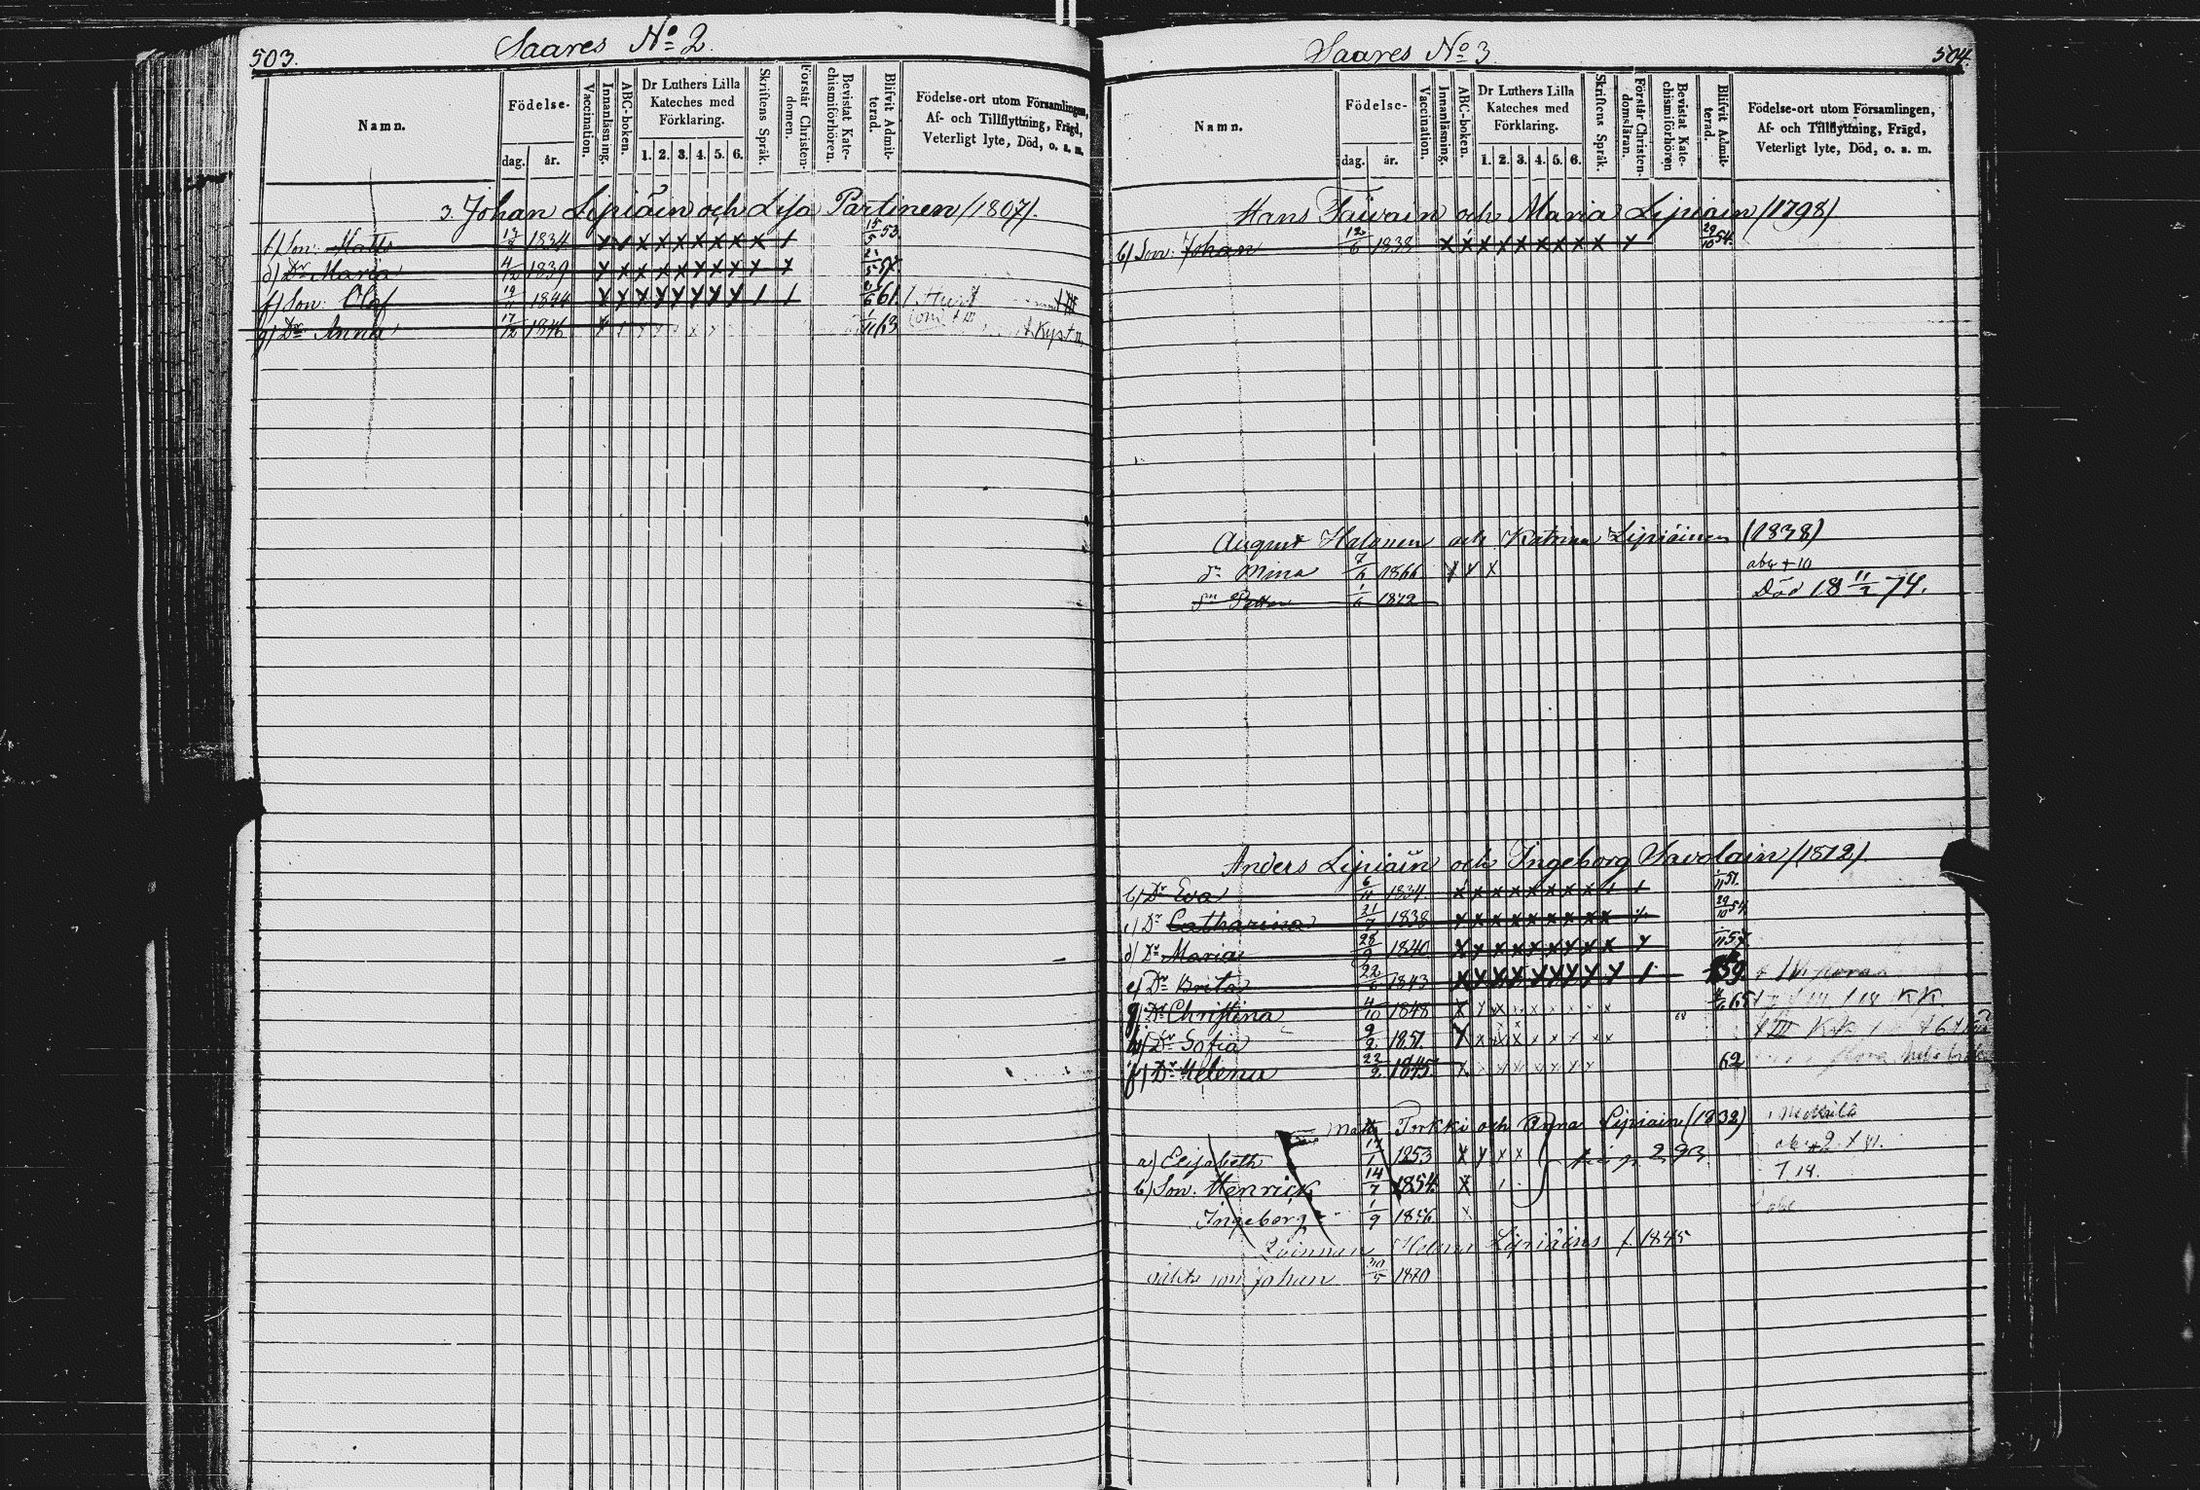 503.
Saares No 2.
Namn.
Födelse-
dag.
år.
Vaccination.
Innanläsning.
ABC-boken.
Dr Luthers Lilla
Kateches med
Förklaring.
1. 2. 3. 4. 5. 6.
Skriftens Språk.
Förstår Christen-
domen.
Bevistat Kate-
chismiförhören.
Blifvit Admit-
terad.
Födelse-ort utom Församlingen,
Af- och Tillflyttning, Frägd,
Veterligt lyte, Död, o. s. m.
3. Johan Lipiäin och Lisa Partinen (1807).
Son: Matts 1834 x x x x x x x x x 15/5 53.
d) Dr Maria 4/12 1839 x x x x x x x x x 57.
f) Son: Olof 19/11 1844 x x x x x x x x 61.
g) Dr Anna 17/12 1846 1/11 63
504.
Saares No 3.
Namn.
Födelse-
dag.
år.
Vaccination.
Innanläsning.
ABC-boken.
Dr Luthers Lilla
Kateches med
Förklaring.
1. 2. 3. 4. 5. 6.
Skriftens Språk.
Förstår Christen-
domsläran.
Bevistat Kate-
chismiförhören
Blifvit Admit-
terad.
Födelse-ort utom Församlingen,
Af- och Tillflyttning, Frägd,
Veterligt lyte, Död, o. s. m.
Hans Taivain och Maria Lipiäin (1798)
b) Son: Johan 12/6 1838 x x x x x x x x x 29/10 54.
August Halonen och Katrina Lipiäinen (1838)
dr Mina 7/6 1866 x x x
sn Petter 1/6 1872 Död 18 11/2 74.
Anders Lipiäin och Ingeborg Savolain (1812)
b) Dr Eva 6/11 1834 x x x x x x x x 1/11 51.
c) Dr Catharina 21/7 1838 x x x x x x x x x 29/10 54
d) Dr Maria 28/9 1840 x x x x x x x x x 57
e) Dr Brita 22/6 1843 x x x x x x x x x 59
g) Dr Christina 4/10 1848 x 65 KK.
h) Dr Sofia 9/2 1851. x
f) Dr Helena 22/2 1845. 62
Matts Torkki och Anna Lipiäin (1832)
a) Elisabeth 17/1 1853 x x x x 293
b) Son: Henrick 14/7 1854. x
Ingeborg 1/9 1856
Qvinnan Helena Lipiäins f. 1845
son Johan 30/5 1870